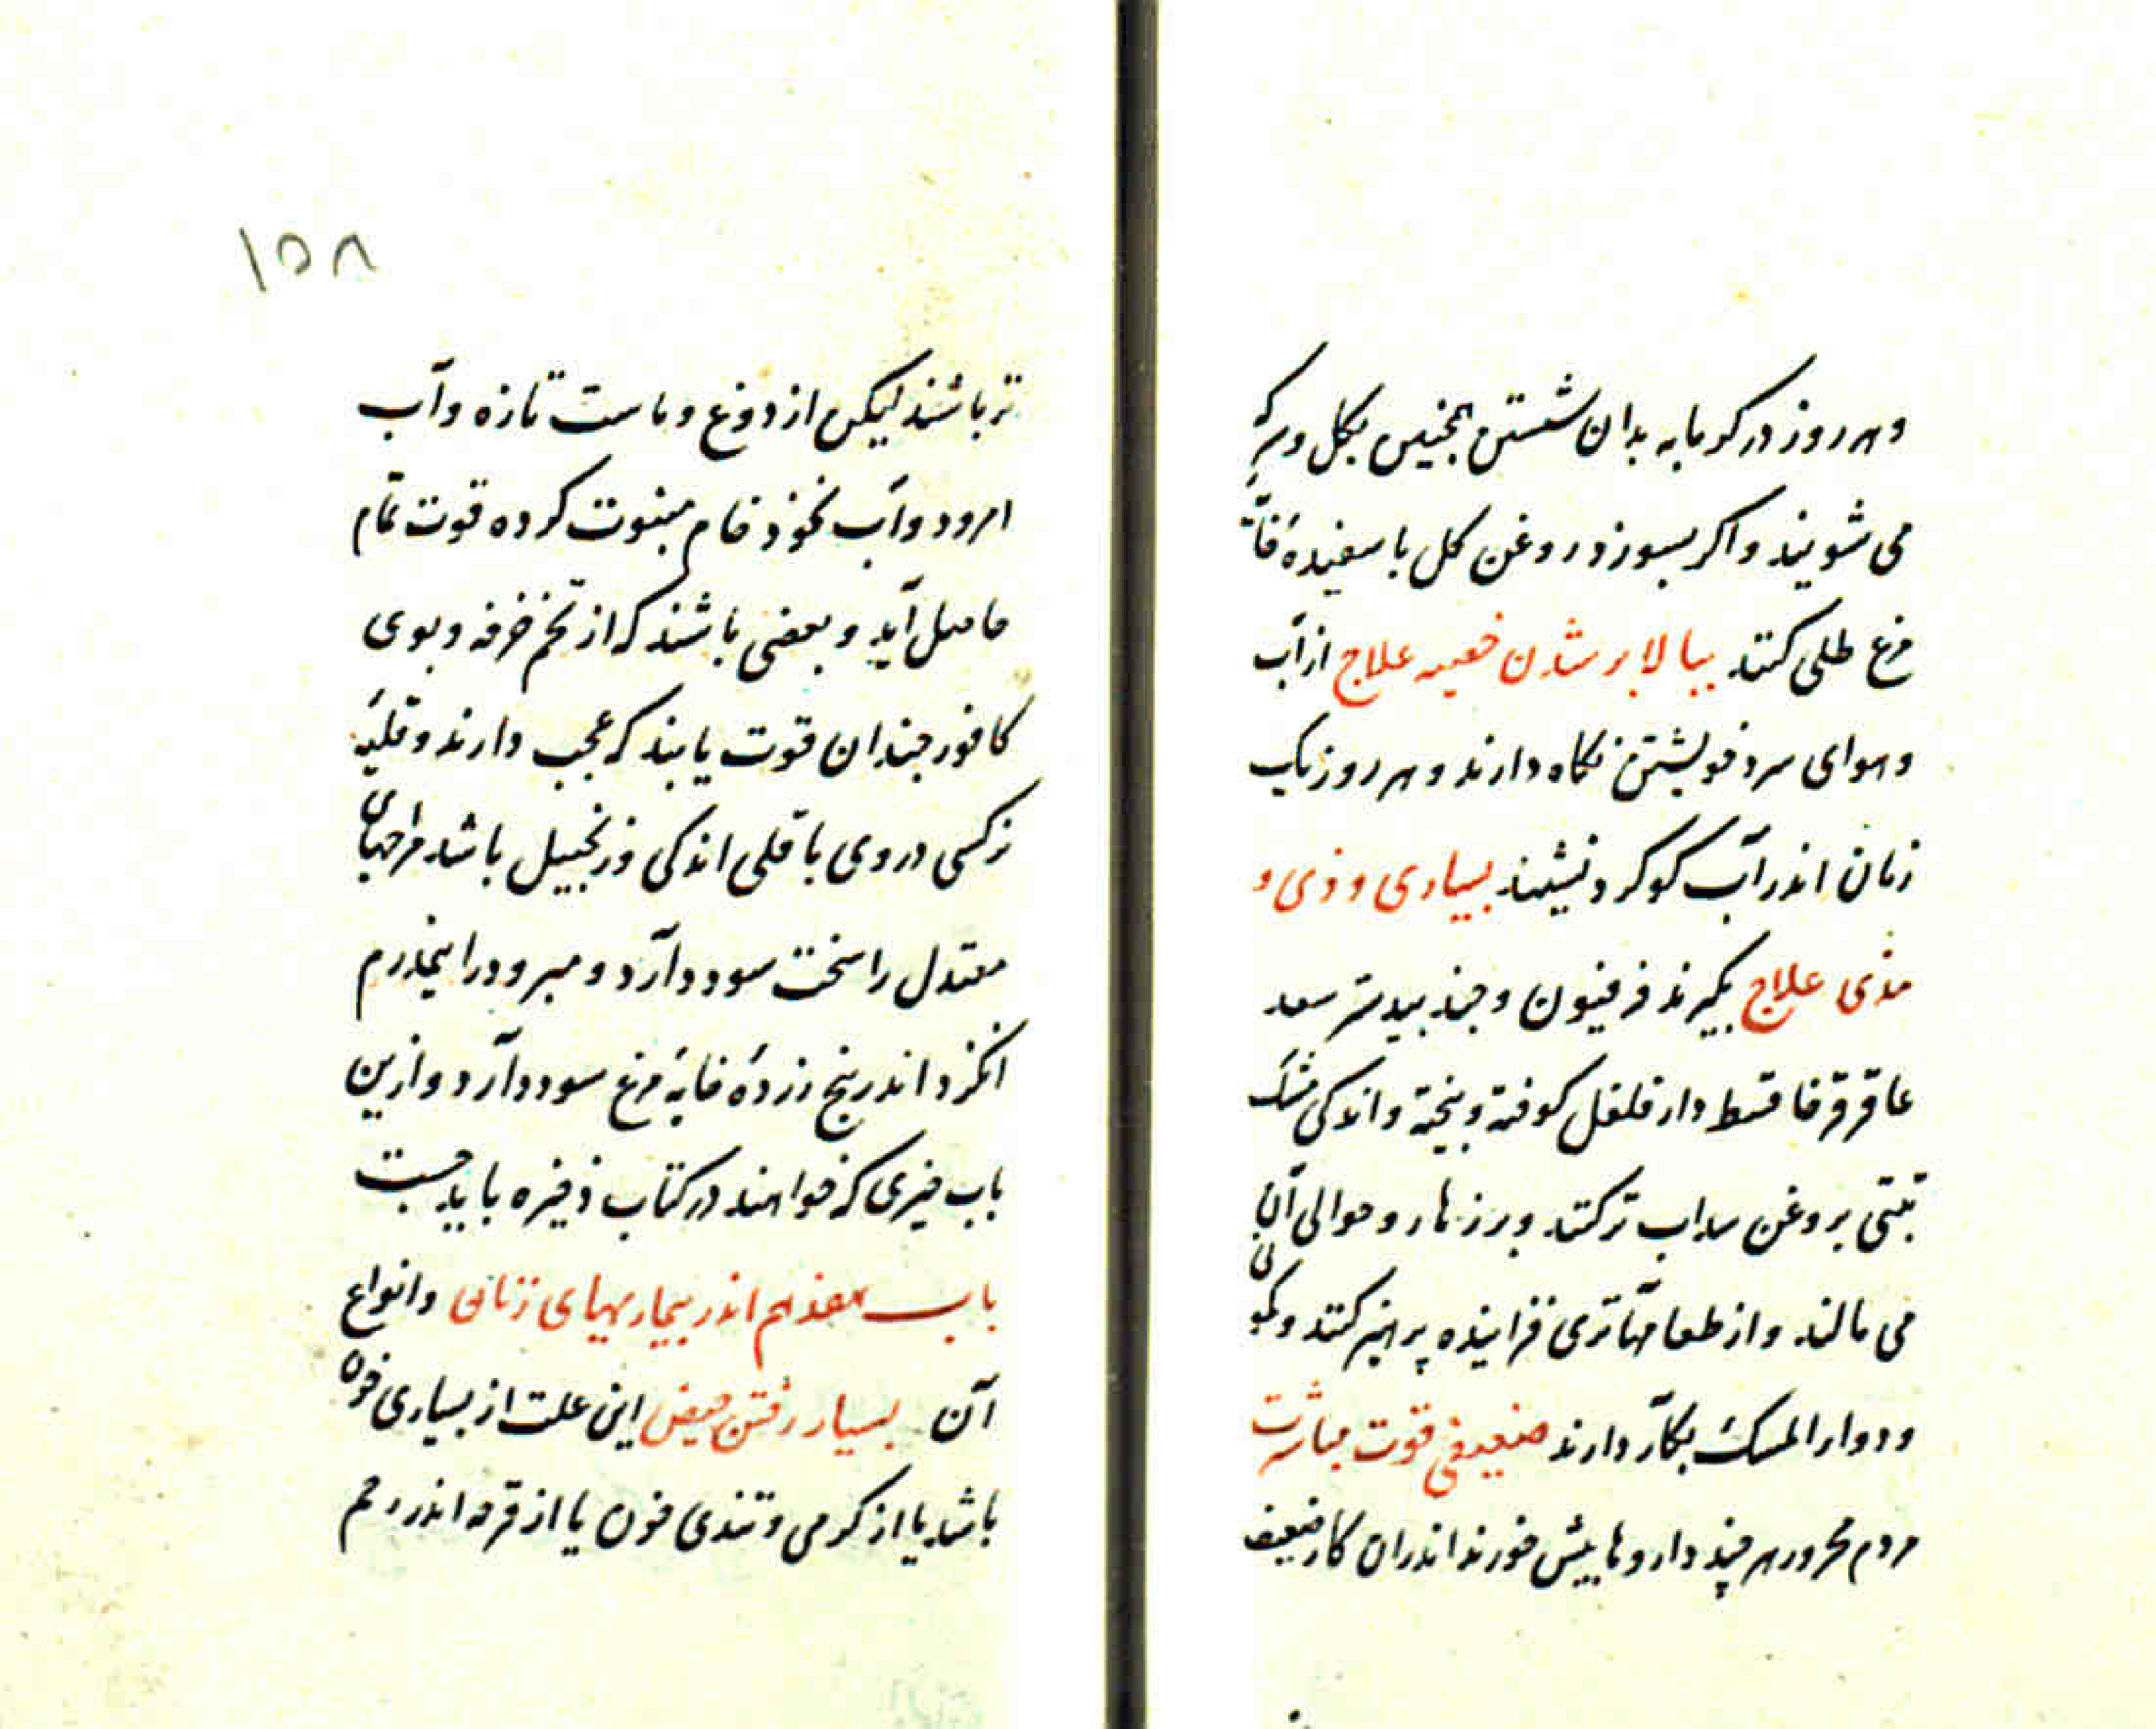 و هر روز در کرمابه بدان شستن همچنین بکل و سرکه
می شویند و اکر بسوزد روغن کل با سفیدهٔ خایهٔ
مرغ طلی کنند ببالا بر شدن خصیه علاج از آب
و هوای سرد خویشتن نکاه دارند و هر روز یک
زمان اندر آب کوکرد نشینند بسیاری وذی و
مذی علاج بکیرند فرفیون و جند بیدستر سعد
عاقرقرحا قسط دارفلفل کوفته و بیخته و اندکی مشک
تبتی بروغن سداب تر کنند و بر زهار و حوالی آن
می مالند و از طعامهاء تری فزاینده پرهیز کنند و کمونی
و دواء المسک بکار دارند ضعیفی قوت مباشرت
مردم محرور هر چند داروها بیش خورند اندران کار ضعیف
۱۵۸
تر باشند لیکن از دوغ و ماست تازه و آب
امرود و آب نخود خام کرده قوت تمام
حاصل آید و بعضی باشند که از تخم خرفه و بوی
کافور جندان قوت یابند که عجب دارند و قلیهٔ
نرکسی در وی باقلی اندکی و زنجبیل باشد مزاجهای
معتدل را سخت سود دارد و مبرود را نیمدرم
انکزد اندر پنج زردهٔ خایهٔ مرغ سود دارد و ازین
باب چیزی که خواهند در کتاب ذخیره باید جست
باب هفدهم اندر بیماریهای زنان و انواع
آن بسیار رفتن حیض این علت از بسیاری خون
باشد یا از کرمی و تندی خون یا از قرحه اندر رحم